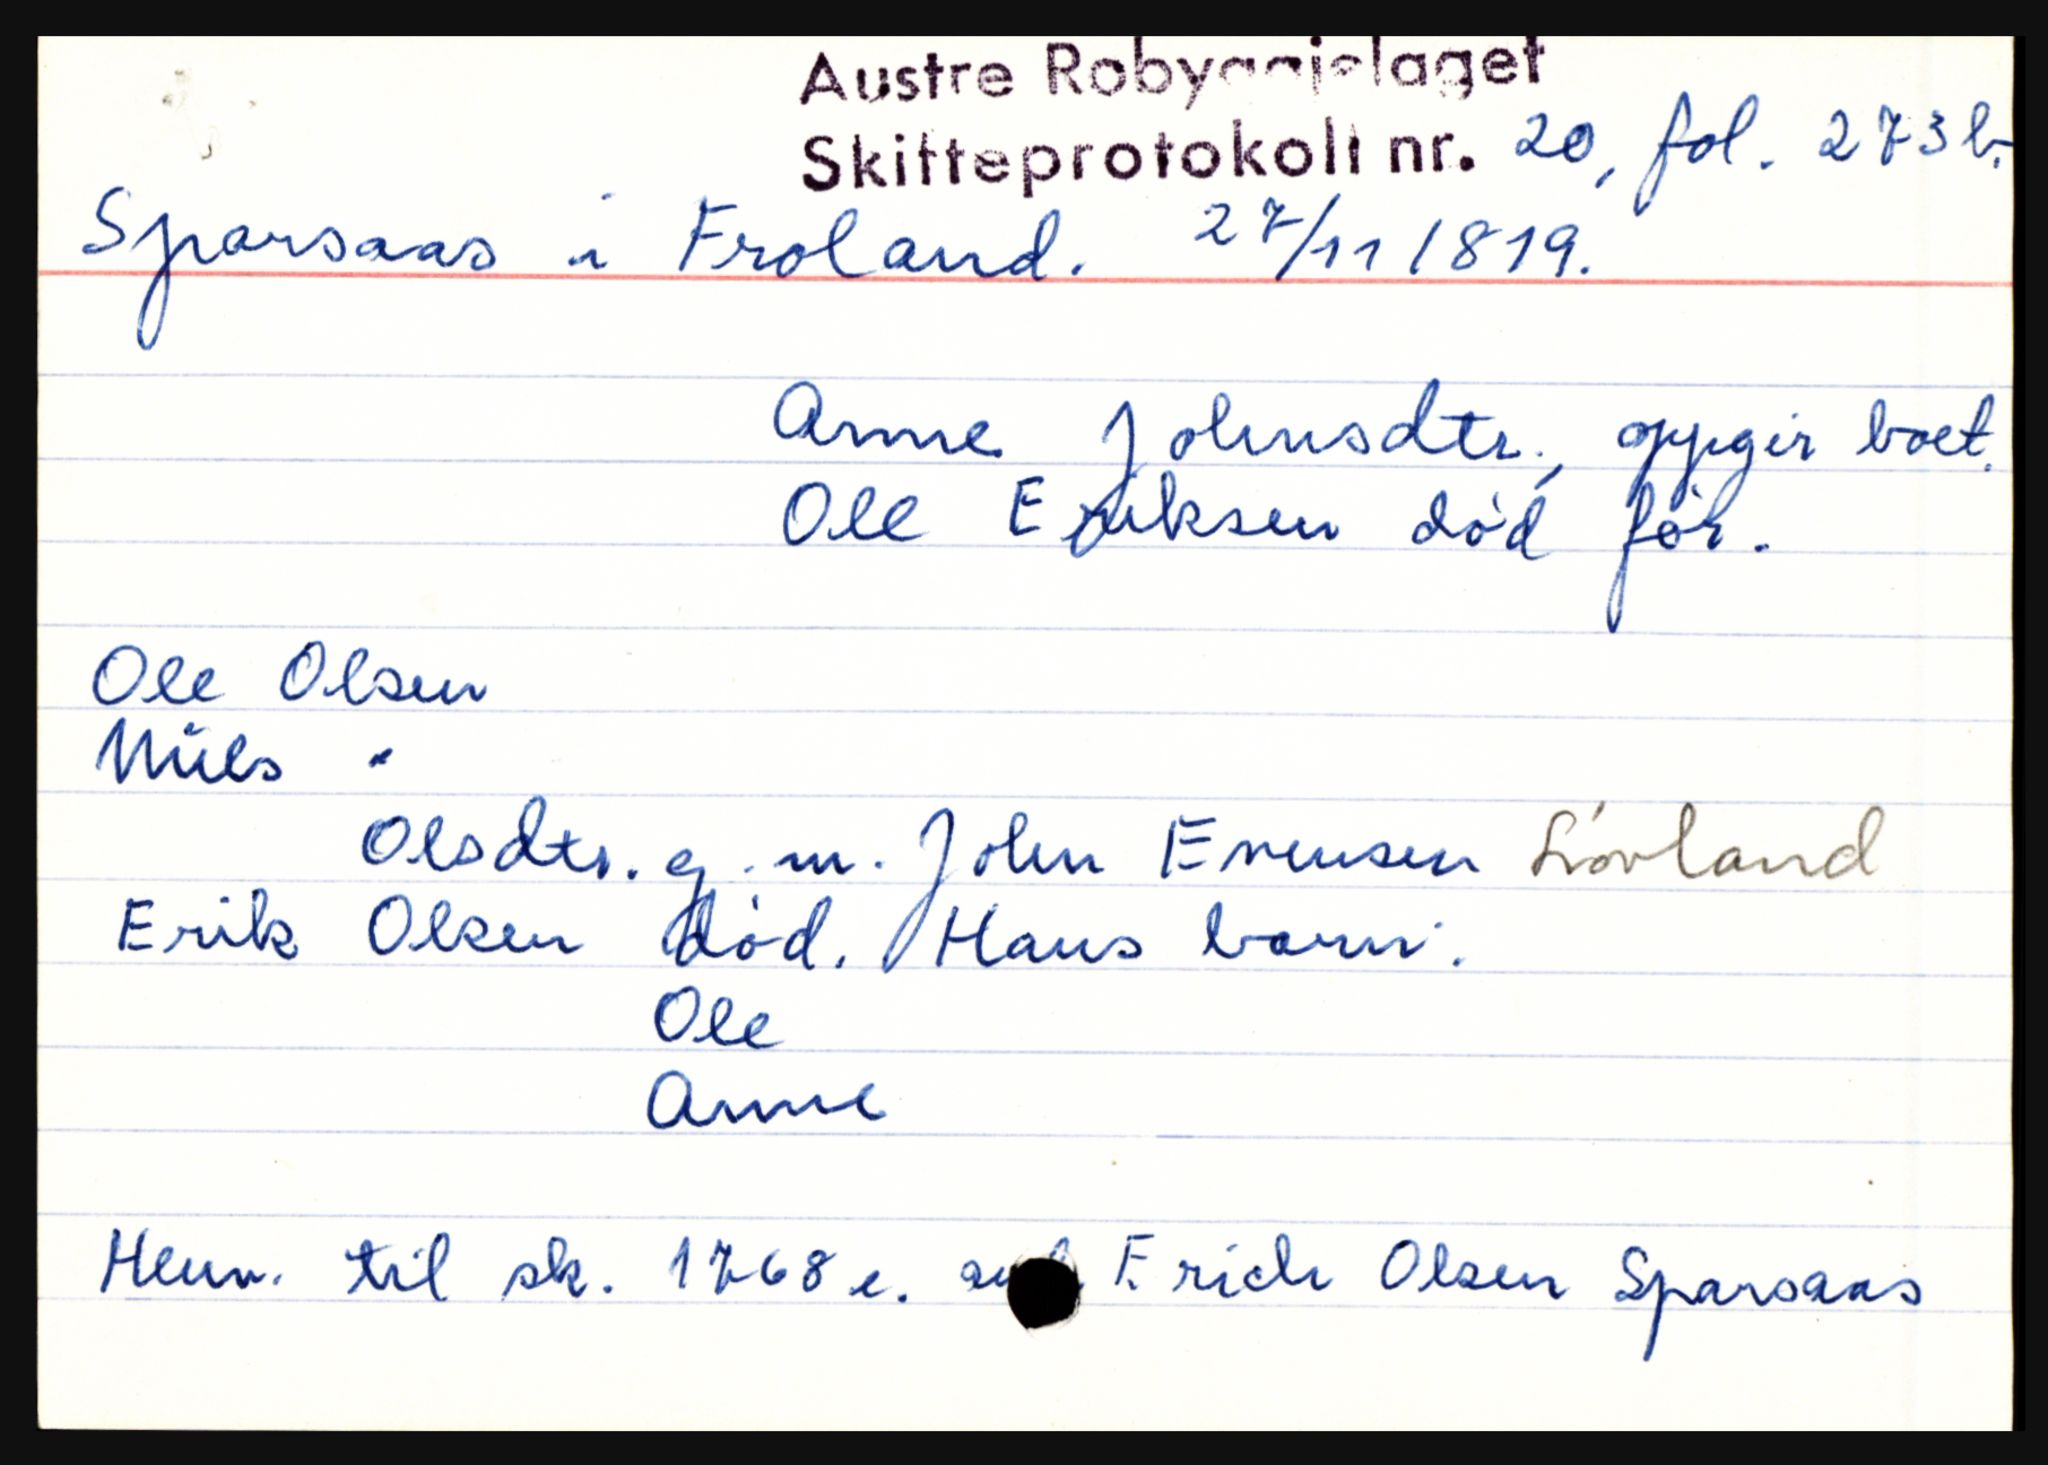 Austre Robyggjelaget
Skifteprotokoll nr. 20, fol. 273 b.
Sparsaas i Froland. 27/11 1819.
Anne Johnsdtr., oppgir boet.
Ole Eriksen død før.
Ole Olsen
Niels "
Olsdtr. g. m. John Evensen Løvland
Erik Olsen død. Hans barn:
Ole
Anne
Henv. til sk. 1768 e. Erich Olsen Sparsaas